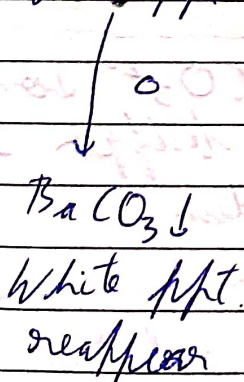 BaCO₃↓
White ppt.
reappear